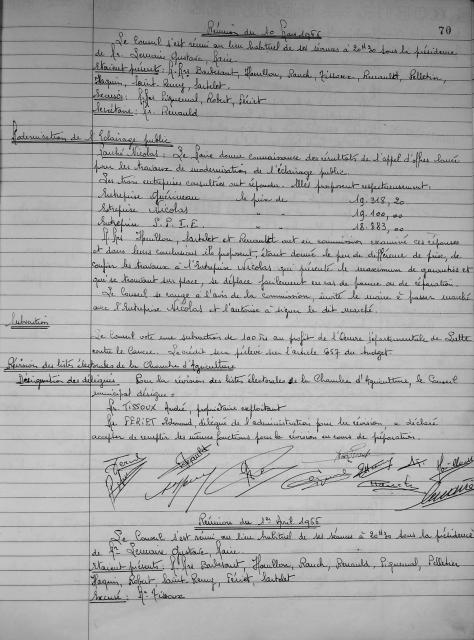 Réunion du 10 Mars 1966
70
Le Conseil s'est réuni au lieu habituel de ses séances à 20H30 sous la présidence
de Mr. Lemaire Gustave, Maire.
Etaient présents : M.Mrs Barbesant, Houillon, Rauch, Tissoux, Renauld, Pelletier,
Haquin, Saint-Remy, Sartelet.
Excusés : M.Mrs Piquemal, Robert, Fériet
Secrétaire : Mr. Renauld
Modernisation de l'Eclairage public
Marché Nicolas : Le Maire donne connaissance des résultats de l'appel d'offres lancé
pour les travaux de modernisation de l'éclairage public.
Les trois entreprises consultées ont répondu. Elles proposent respectivement :
Entreprise Guérineau le prix de 19.318,20
Entreprise Nicolas " " 19.100,00
Entreprise S.P.I.E. " " 18.883,00
M.Mrs Houillon, Sartelet et Renauld ont en commission examiné ces réponses
et dans leurs conclusions ils proposent, étant donné le peu de différence de prix, de
confier les travaux à l'Entreprise Nicolas qui présente le maximum de garanties et
qui se trouvant sur place, se déplace facilement en cas de panne ou de réparation.
Le Conseil se range à l'avis de la Commission, invite le maire à passer marché
avec l'Entreprise Nicolas et l'autorise à signer le dit marché.
Subvention
Le Conseil vote une subvention de 100 Frs au profit de l'Oeuvre départementale de Lutte
contre le Cancer. Le crédit sera prélevé sur l'article 657 du budget.
Révision des listes électorales de la Chambre d'Agriculture
Désignation des délégués : Pour la révision des listes électorales de la Chambre d'Agriculture, le Conseil
municipal désigne :
Mr TISSOUX André, propriétaire exploitant
Mr FERIET Edmond, délégué de l'administration pour la révision, a déclaré
accepter de remplir les mêmes fonctions pour la révision en cours de préparation.
Réunion du 1er Avril 1966
Le Conseil s'est réuni au lieu habituel de ses séances à 20H30 sous la présidence
de Mr Lemaire Gustave, Maire.
Etaient présents : M.Mrs Barbesant, Houillon, Rauch, Renauld, Piquemal, Pelletier
Haquin, Robert, Saint-Remy, Fériet, Sartelet
Excusé : Mr Tissoux